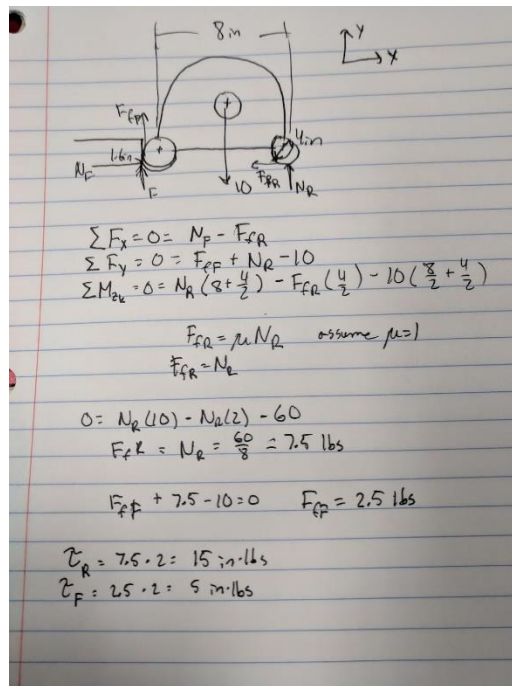 8in
Y
X
F_fF
4in
1.6in
N_F
F
10
F_fR
N_R
ΣF_x = 0 = N_F - F_fR
ΣF_y = 0 = F_fF + N_R - 10
ΣM_z = 0 = N_R (8 + 4/2) - F_fR (4/2) - 10 (8/2 + 4/2)
F_fR = μ N_R assume μ=1
F_fR = N_R
0 = N_R (10) - N_R (2) - 60
F_fR = N_R = 60/8 = 7.5 lbs
F_fF + 7.5 - 10 = 0 F_fF = 2.5 lbs
τ_R = 7.5 · 2 = 15 in·lbs
τ_F = 2.5 · 2 = 5 in·lbs